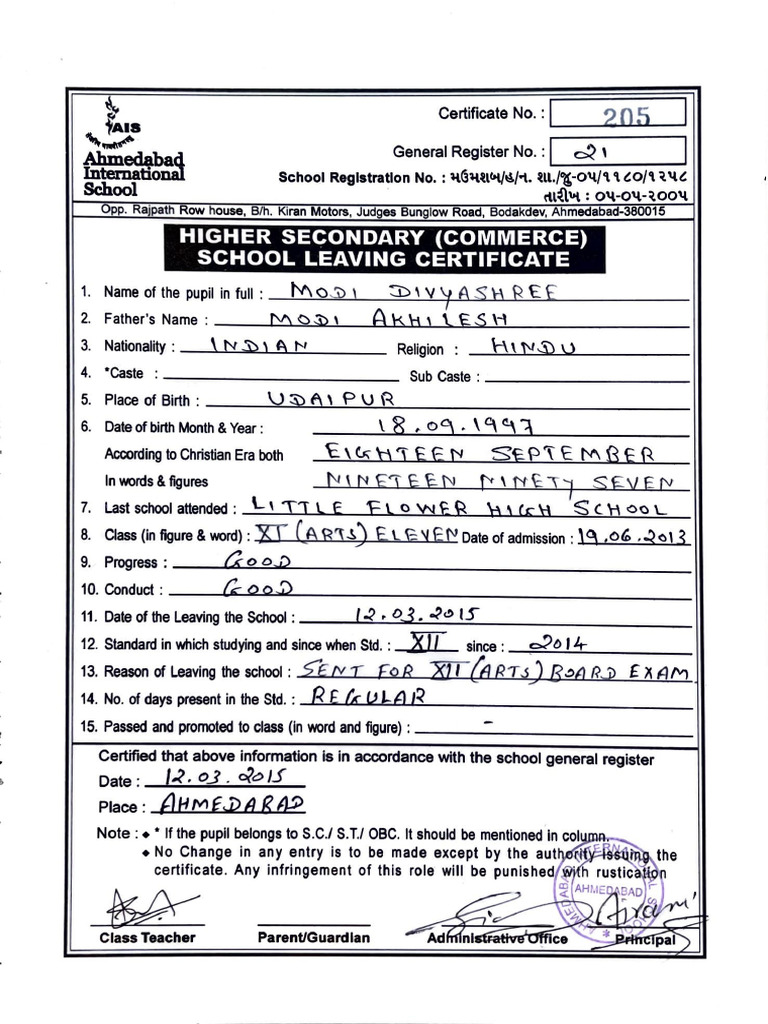 Certificate No. : 205
AIS
Ahmedabad
International
School
General Register No. : 21
School Registration No. : મઉમશબ/હ/ન. શા./જુ-૦૫/૧૧૮૦/૧૨૫૮
તારીખ : ૦૫-૦૫-૨૦૦૫
Opp. Rajpath Row house, B/h. Kiran Motors, Judges Bunglow Road, Bodakdev, Ahmedabad-380015
HIGHER SECONDARY (COMMERCE)
SCHOOL LEAVING CERTIFICATE
1. Name of the pupil in full : MODI DIVYASHREE
2. Father's Name : MODI AKHILESH
3. Nationality : INDIAN Religion : HINDU
4. *Caste : Sub Caste :
5. Place of Birth : UDAIPUR
6. Date of birth Month & Year : 18.09.1997
According to Christian Era both EIGHTEEN SEPTEMBER
In words & figures NINETEEN NINETY SEVEN
7. Last school attended : LITTLE FLOWER HIGH SCHOOL
8. Class (in figure & word) : XI (ARTS) ELEVEN Date of admission : 19.06.2013
9. Progress : GOOD
10. Conduct : GOOD
11. Date of the Leaving the School : 12.03.2015
12. Standard in which studying and since when Std. : XII since : 2014
13. Reason of Leaving the school : SENT FOR XII (ARTS) BOARD EXAM
14. No. of days present in the Std. : REGULAR
15. Passed and promoted to class (in word and figure) : -
Certified that above information is in accordance with the school general register
Date : 12.03.2015
Place : AHMEDABAD
Note : ◆ * If the pupil belongs to S.C./ S.T./ OBC. It should be mentioned in column.
◆ No Change in any entry is to be made except by the authority issuing the
certificate. Any infringement of this role will be punished with rustication
AHMEDABAD INTERNATIONAL SCHOOL
AHMEDABAD
Class Teacher Parent/Guardian Administrative Office Principal